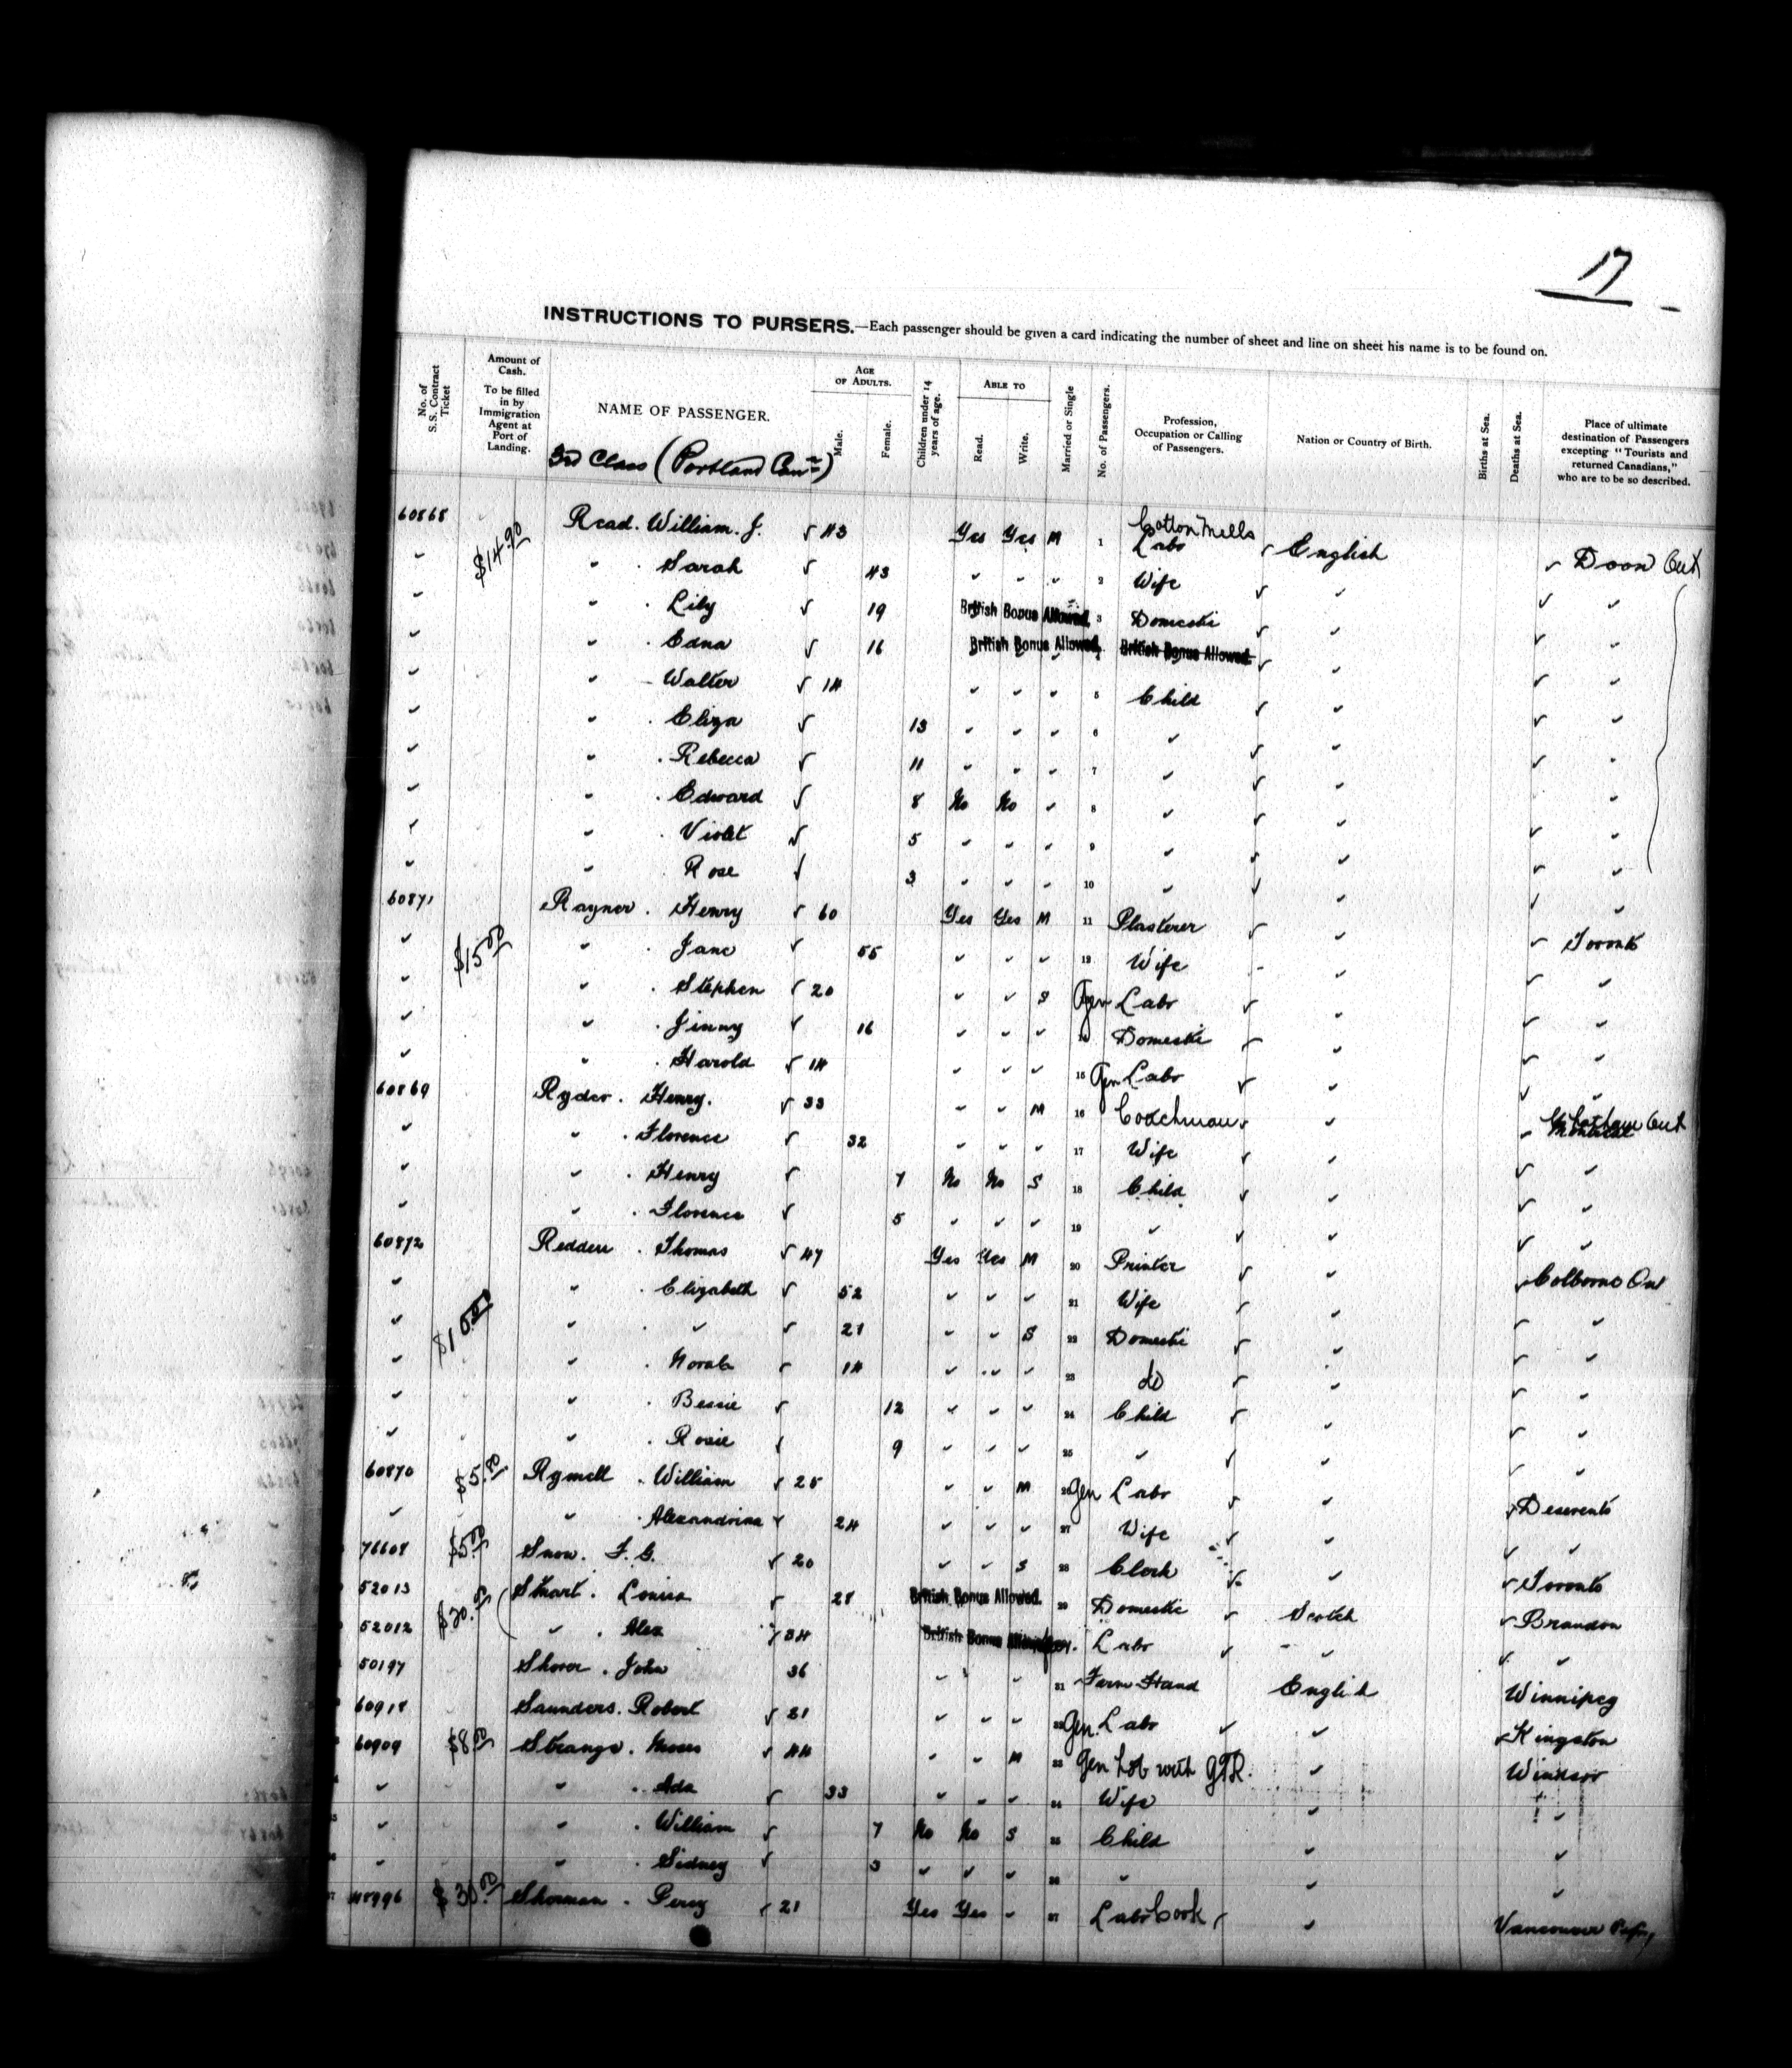 17
INSTRUCTIONS TO PURSERS.—Each passenger should be given a card indicating the number of sheet and line on sheet his name is to be found on.
No. of S.S. Contract Ticket
Amount of Cash. To be filled in by Immigration Agent at Port of Landing.
NAME OF PASSENGER.
AGE OF ADULTS.
Male.
Female.
Children under 14 years of age.
ABLE TO
Read.
Write.
Married or Single
No. of Passengers.
Profession, Occupation or Calling of Passengers.
Nation or Country of Birth.
Births at Sea.
Deaths at Sea.
Place of ultimate destination of Passengers excepting "Tourists and returned Canadians," who are to be so described.
3rd Class (Portland Can)
60868 $14.90 Read. William. J. √ 43 Yes Yes M 1 Cotton Mills Labr √ English √ Doon Ont
" " . Sarah √ 43 " " " 2 Wife √ " √ "
" " . Lily √ 19 British Bonus Allowed. 3 Domestic √ " √ "
" " . Edna √ 16 British Bonus Allowed. British Bonus Allowed. √ " √ "
" " Walter √ 14 " " " 5 Child √ " √ "
" " . Eliza √ 13 " " " 6 " √ " √ "
" " . Rebecca √ 11 " " " 7 " √ " √ "
" " . Edward √ 8 No No " 8 " √ " √ "
" " . Violet √ 5 " " " 9 " √ " √ "
" " . Rose √ 3 " " " 10 " √ " √ "
60871 Rayner . Henry √ 60 Yes Yes M 11 Plasterer √ " √ Toronto
" $15.00 " . Jane √ 55 " " " 12 Wife " √ "
" " . Stephen √ 20 " " S Gen Labr √ " √ "
" " . Jinny √ 16 " " " 14 Domestic √ " √ "
" " . Harold √ 14 " " " 15 Gen Labr √ " √ "
60869 Ryder . Henry. √ 33 " " M 16 Coachman √ " √ Chatham Ont
" " . Florence √ 32 " " " 17 Wife √ " √ "
" " . Henry √ 7 No No S 18 Child √ " √ "
" " . Florence √ 5 " " " 19 " √ " √ "
60872 Redden . Thomas √ 47 Yes Yes M 20 Printer √ " √ Colborne On
" " . Elizabeth √ 52 " " " 21 Wife √ " √ "
" $10.00 " . " √ 21 " " S 22 Domestic √ " √ "
" " . Norah √ 14 " " " 23 do √ " √ "
" " . Bessie √ 12 " " " 24 Child √ " √ "
" " . Rosie √ 9 " " " 25 " √ " √ "
60870 $5.00 Rymell . William √ 25 " " M 26 Gen Labr √ " √ Deseronto
" " . Alexandrina √ 24 " " " 27 Wife √ " √ "
76608 $5.00 Snow. F. G. √ 20 " " S 28 Clerk √ " √ Toronto
52013 $20.00 Stuart . Louisa √ 28 British Bonus Allowed. 29 Domestic √ Scotch √ Brandon
52012 " . Alex √ 34 British Bonus Labr √ " √ "
50197 Shorer . John 36 " " " 31 Farm Hand English Winnipeg
60918 Saunders. Robert √ 21 " " " 32 Gen. Labr √ " √ Kingston
60909 $8.00 Strange . Moses √ 44 " " M 33 Gen Lab with GTR. " Windsor
" " . Ada √ 33 " " " 34 Wife " "
" " . William √ 7 No No S 35 Child " "
" " . Sidney √ 3 " " " 36 " " "
48996 $30.00 Sherman . Percy √ 21 Yes Yes " 37 Labr Cook √ " Vancouver